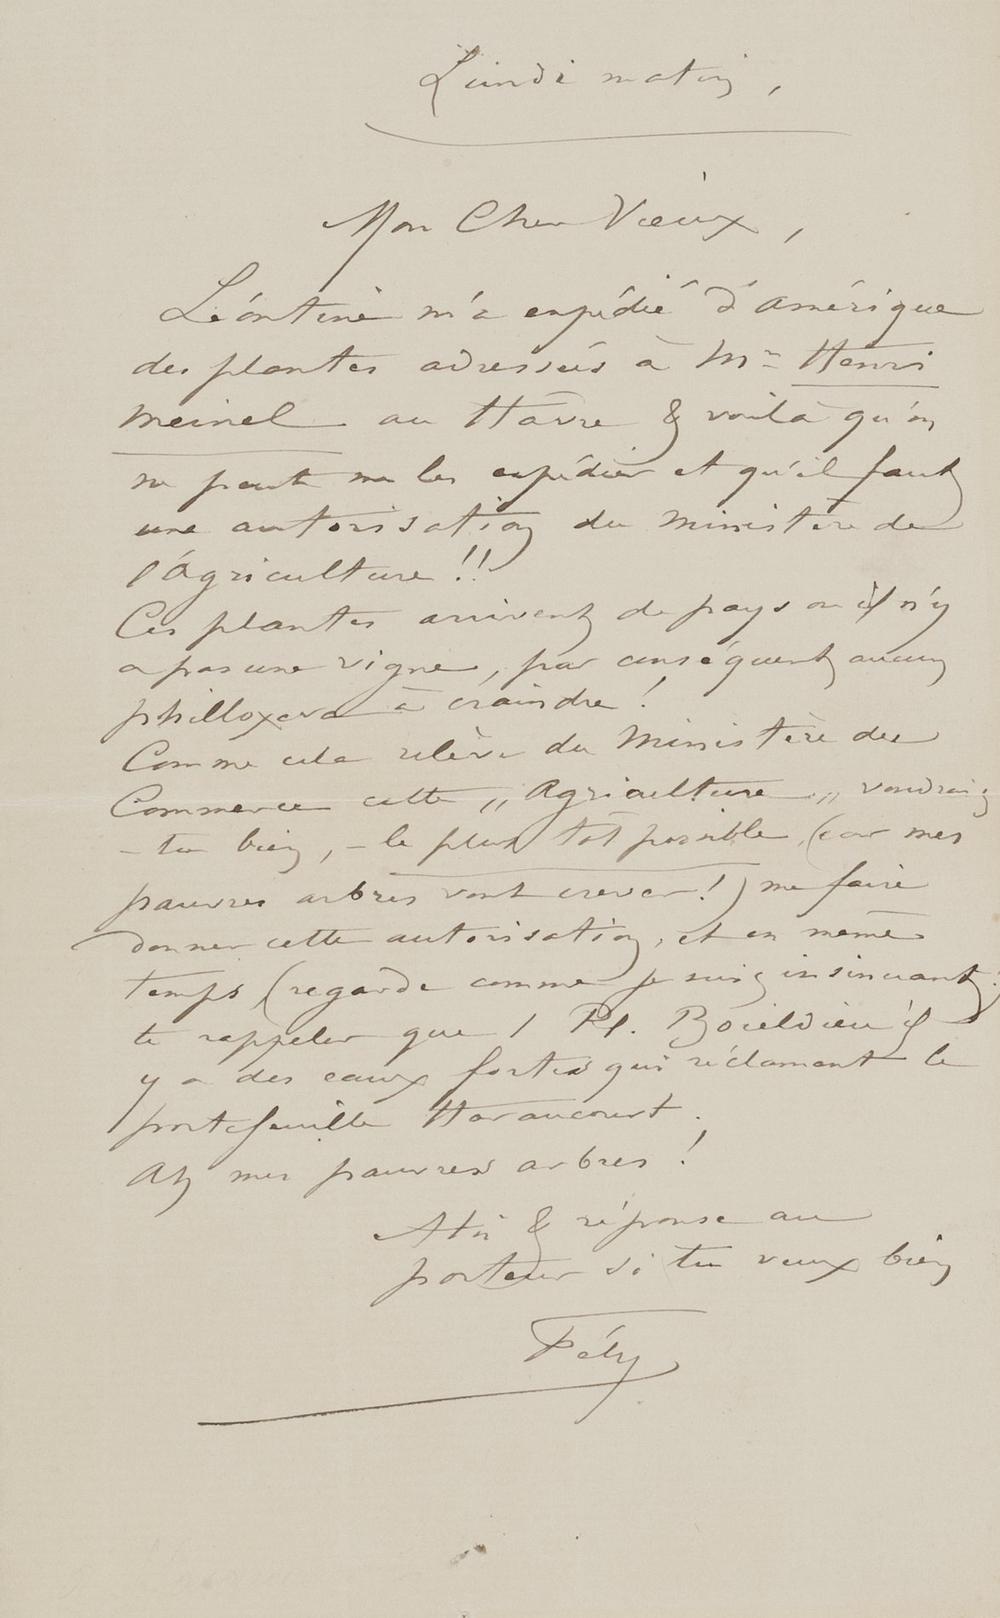 Lundi matin,
Mon Cher Vieux,
Léontine m'a expédié d'Amérique
des plantes adressées à Mr Henri
Meinel au Havre & voilà qu'on
ne peut me les expédier et qu'il faut
une autorisation du Ministère de
l'Agriculture !!
Ces plantes arrivent de pays où il n'y
a pas une vigne, par conséquent aucun
philloxera à craindre !
Comme cela relève du Ministère du
Commerce cette „Agriculture„ voudrais
– tu bien, – le plus tôt possible (car mes
pauvres arbres vont crever !) me faire
donner cette autorisation, et en même
temps (regarde comme je suis insinuant)
te rappeler que 1 Pl. Boieldieu il
y a des eaux fortes qui réclament le
portefeuille Haraucourt.
Ah mes pauvres arbres !
A toi & réponse au
porteur si tu veux bien
Fély